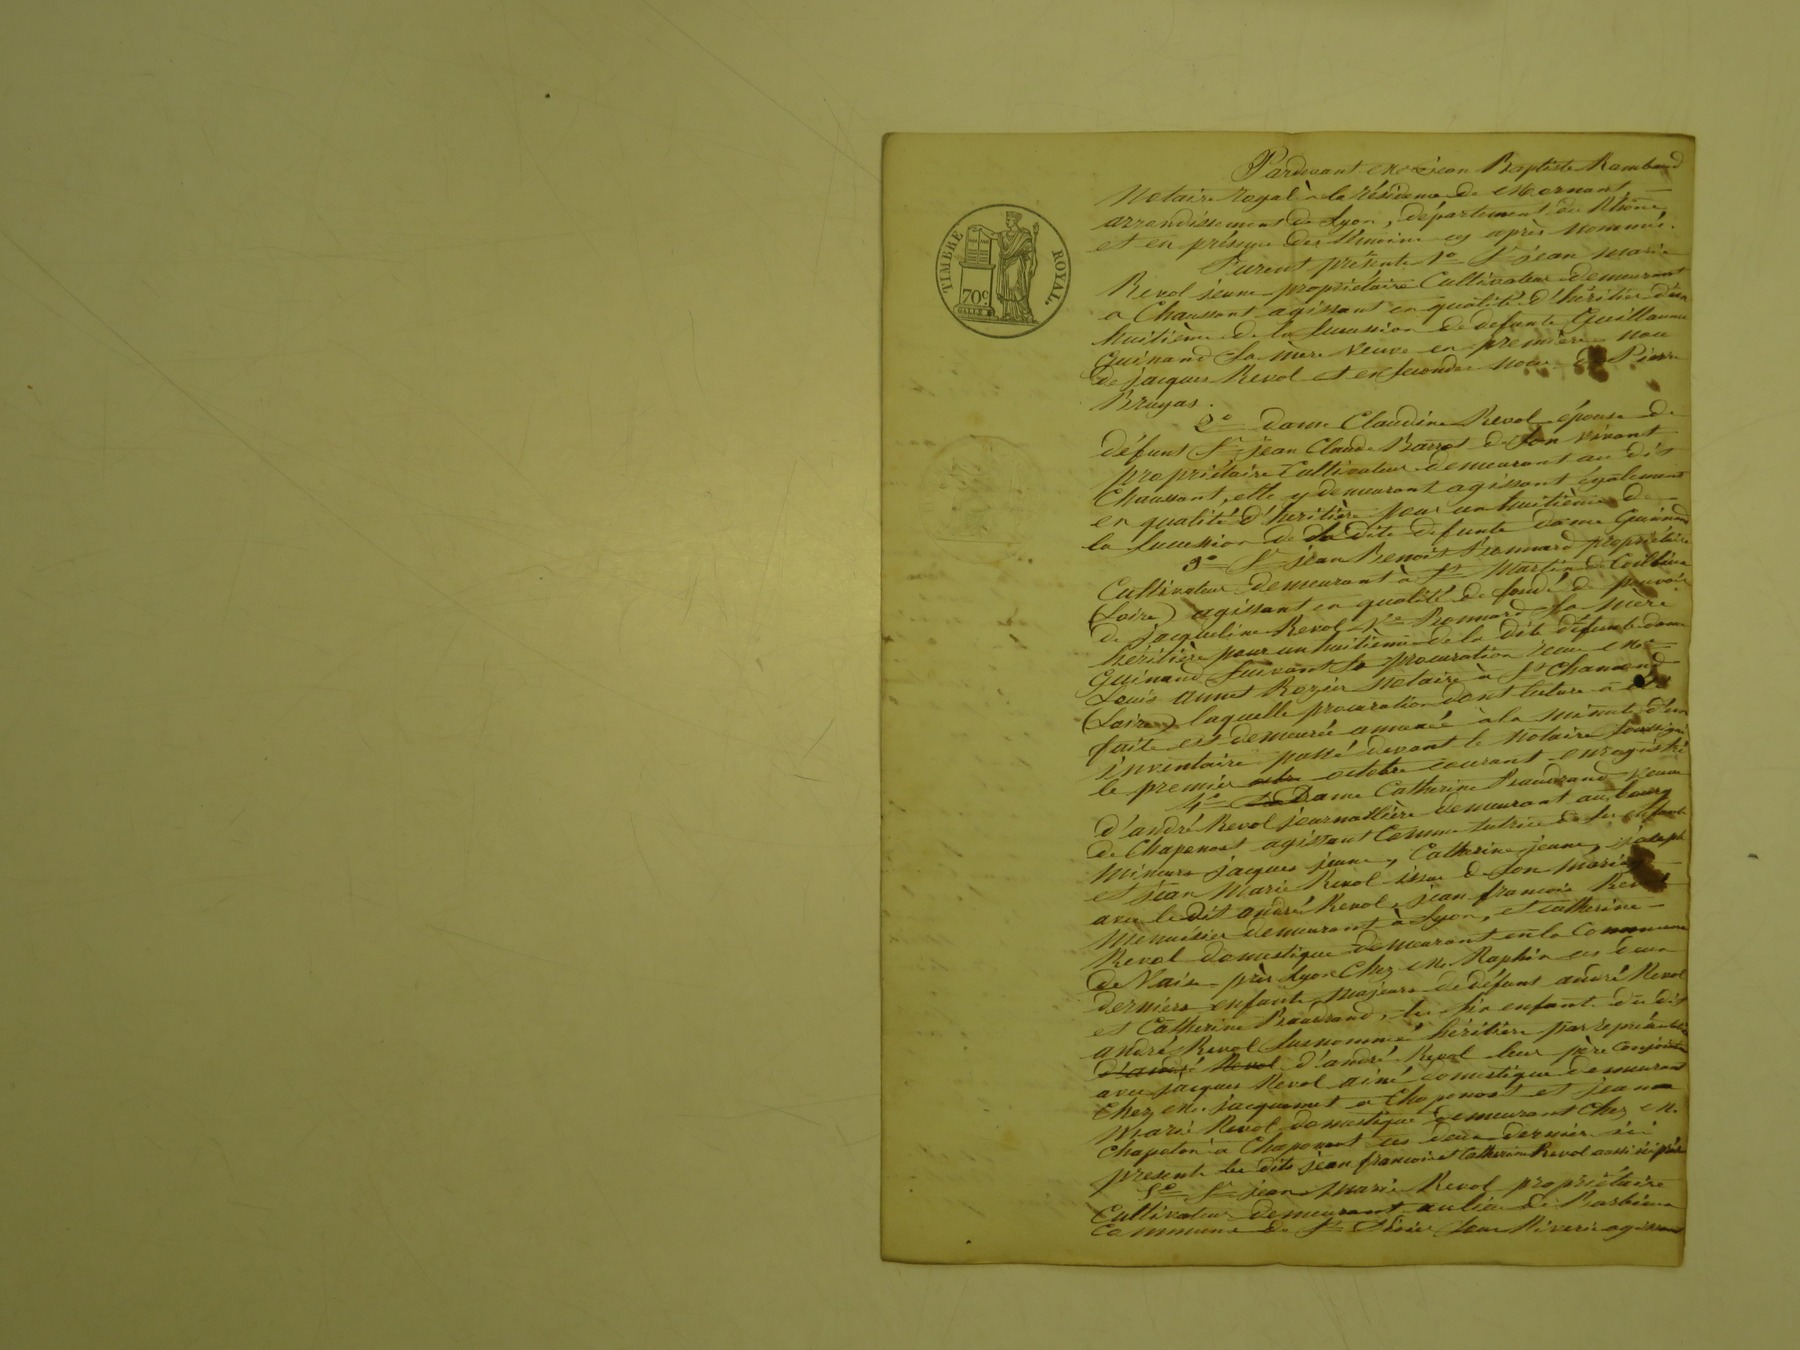 TIMBRE ROYAL.
70c.
Pardevant Me jean Baptiste Rambaud
Notaire royal à la résidence de Mornant
arrondissement de Lyon, département du Rhône
et en présence des témoins cy après nommés.
Furent présents 1o Sr jean marie
Revol jeune propriétaire Cultivateur demeurant
a Chaussant agissant en qualité d'héritier d'un
huitième de la succession de defunte Guillaume
Guinand sa mère veuve en première noce
de jacques Revol et en seconde noce de Pierre
Bruyas.
2o dame Claudine Revol épouse de
défunt Sr jean Claude Barrot de son vivant
propriétaire Cultivateur demeurant au dit
Chaussant, elle y demeurant agissant également
en qualité d'héritière pour un huitième de
la succession de la dite defunte dame Guinand
3o Sr jean Benoît Bonnard propriétaire
Cultivateur demeurant à St Martin de Coilleux
(Loire) agissant en qualité de fondé de pouvoir
de jacqueline Revol Ve Bonnard sa mère
héritière pour un huitième de la dite defunte dame
Guinand suivant la procuration reçue Me
Louis annet Rozier Notaire à St Chamond
(Loire) laquelle procuration dont lecture a été
faite est demeurée annexée à la minute d'un
inventaire passé devant le Notaire soussigné
le premier octobre courant enregistré
4o Dame Catherine Beaudrand veuve
d'andré Revol journalière demeurant au bourg
de Chaponost agissant Comme tutrice de ses enfants
mineurs jacques jeune, Catherine jeune, joseph
et jean Marie Revol issue de son mariage
avec le dit andré Revol, jean francois Revol
Menuisier demeurant à Lyon, et catherine
Revol domestique demeurant en la Commune
de Vaise près Lyon Chez Mr Raphin ces deux
derniers enfants majeurs de défunt andré Revol
et Catherine Beaudrand, les six enfants du dit
andré Revol susnommé héritiers par représentation
d'andré Revol d'andré Revol leur père conjointement
avec jacques Revol ainé domestique demeurant
Chez Mr jacquemet a Chaponost et jeanne
Marie Revol domestique demeurant Chez Mr
Chapoton a Chaponost ces deux derniers ici
present les dits jean francois et Catherine Revol aussi ici présents
5o Sr jean Marie Revol propriétaire
Cultivateur demeurant au lieu de Barbieux
Commune de St Didier sous Riverie agissant